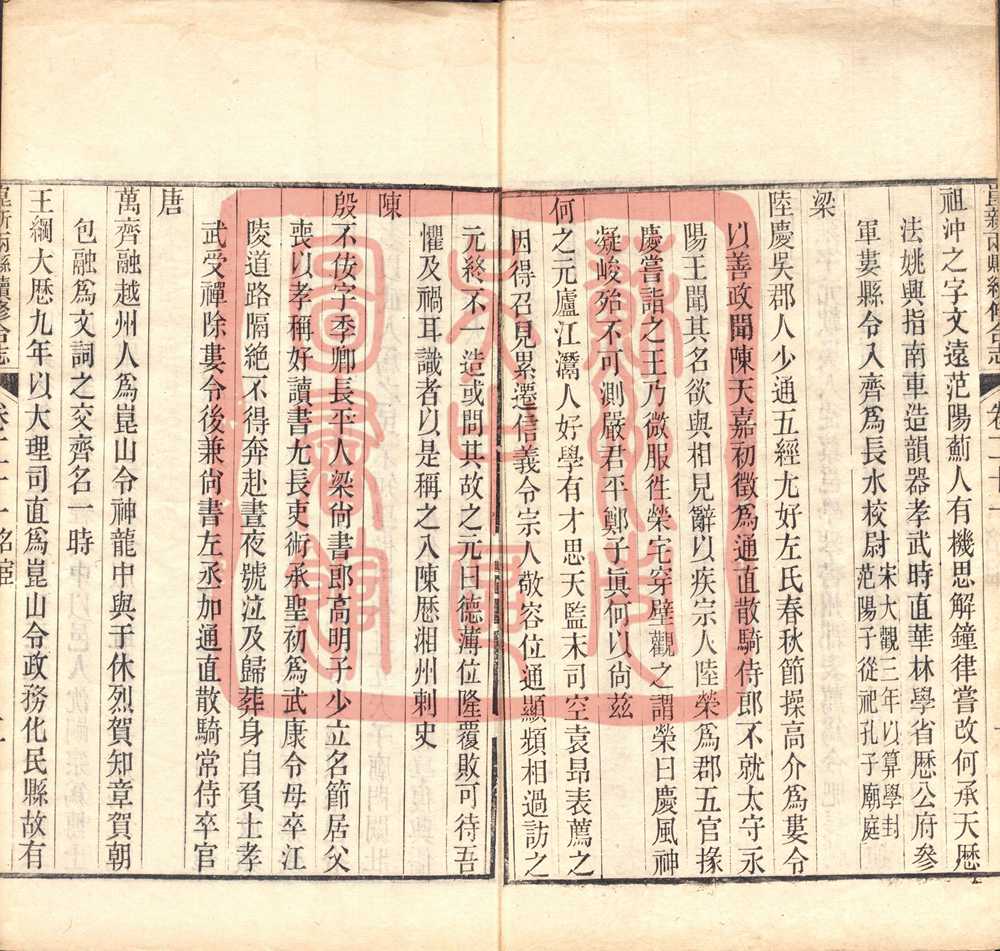 祖冲之字文遠范陽薊人有機思解鐘律嘗改何承天厯
法姚興指南車造韻器孝武時直華林學省厯公府參
軍婁縣令入齊爲長水校尉宋大觀三年以算學封
范陽子從祀孔子廟庭
梁
陸慶吳郡人少通五經尤好左氏春秋節操高介爲婁令
以善政聞陳天嘉初徵爲通直散騎侍郎不就太守永
陽王聞其名欲與相見辭以疾宗人陸榮爲郡五官掾
慶嘗詣之王乃微服徃榮宅穿壁觀之謂榮曰慶風神
凝峻殆不可測嚴君平鄭子眞何以尙茲
何之元廬江灊人好學有才思天監末司空袁昻表薦之
因得召見累遷信義令宗人敬容位通顯頻相過訪之
元終不一造或問其故之元曰德薄位隆覆敗可待吾
懼及禍耳識者以是稱之入陳厯湘州刺史
陳
殷不佞字季卿長平人梁尙書郎高明子少立名節居父
喪以孝稱好讀書尤長吏術承聖初爲武康令母卒江
陵道路隔絶不得奔赴晝夜號泣及歸葬身自負土孝
武受禪除婁令後兼尙書左丞加通直散騎常侍卒官
唐
萬齊融越州人爲崑山令神龍中與于休烈賀知章賀朝
包融爲文詞之交齊名一時
王綱大厯九年以大理司直爲崑山令政務化民縣故有
崑新兩縣續修合志
卷二十一名宦
蘇州大
圖書